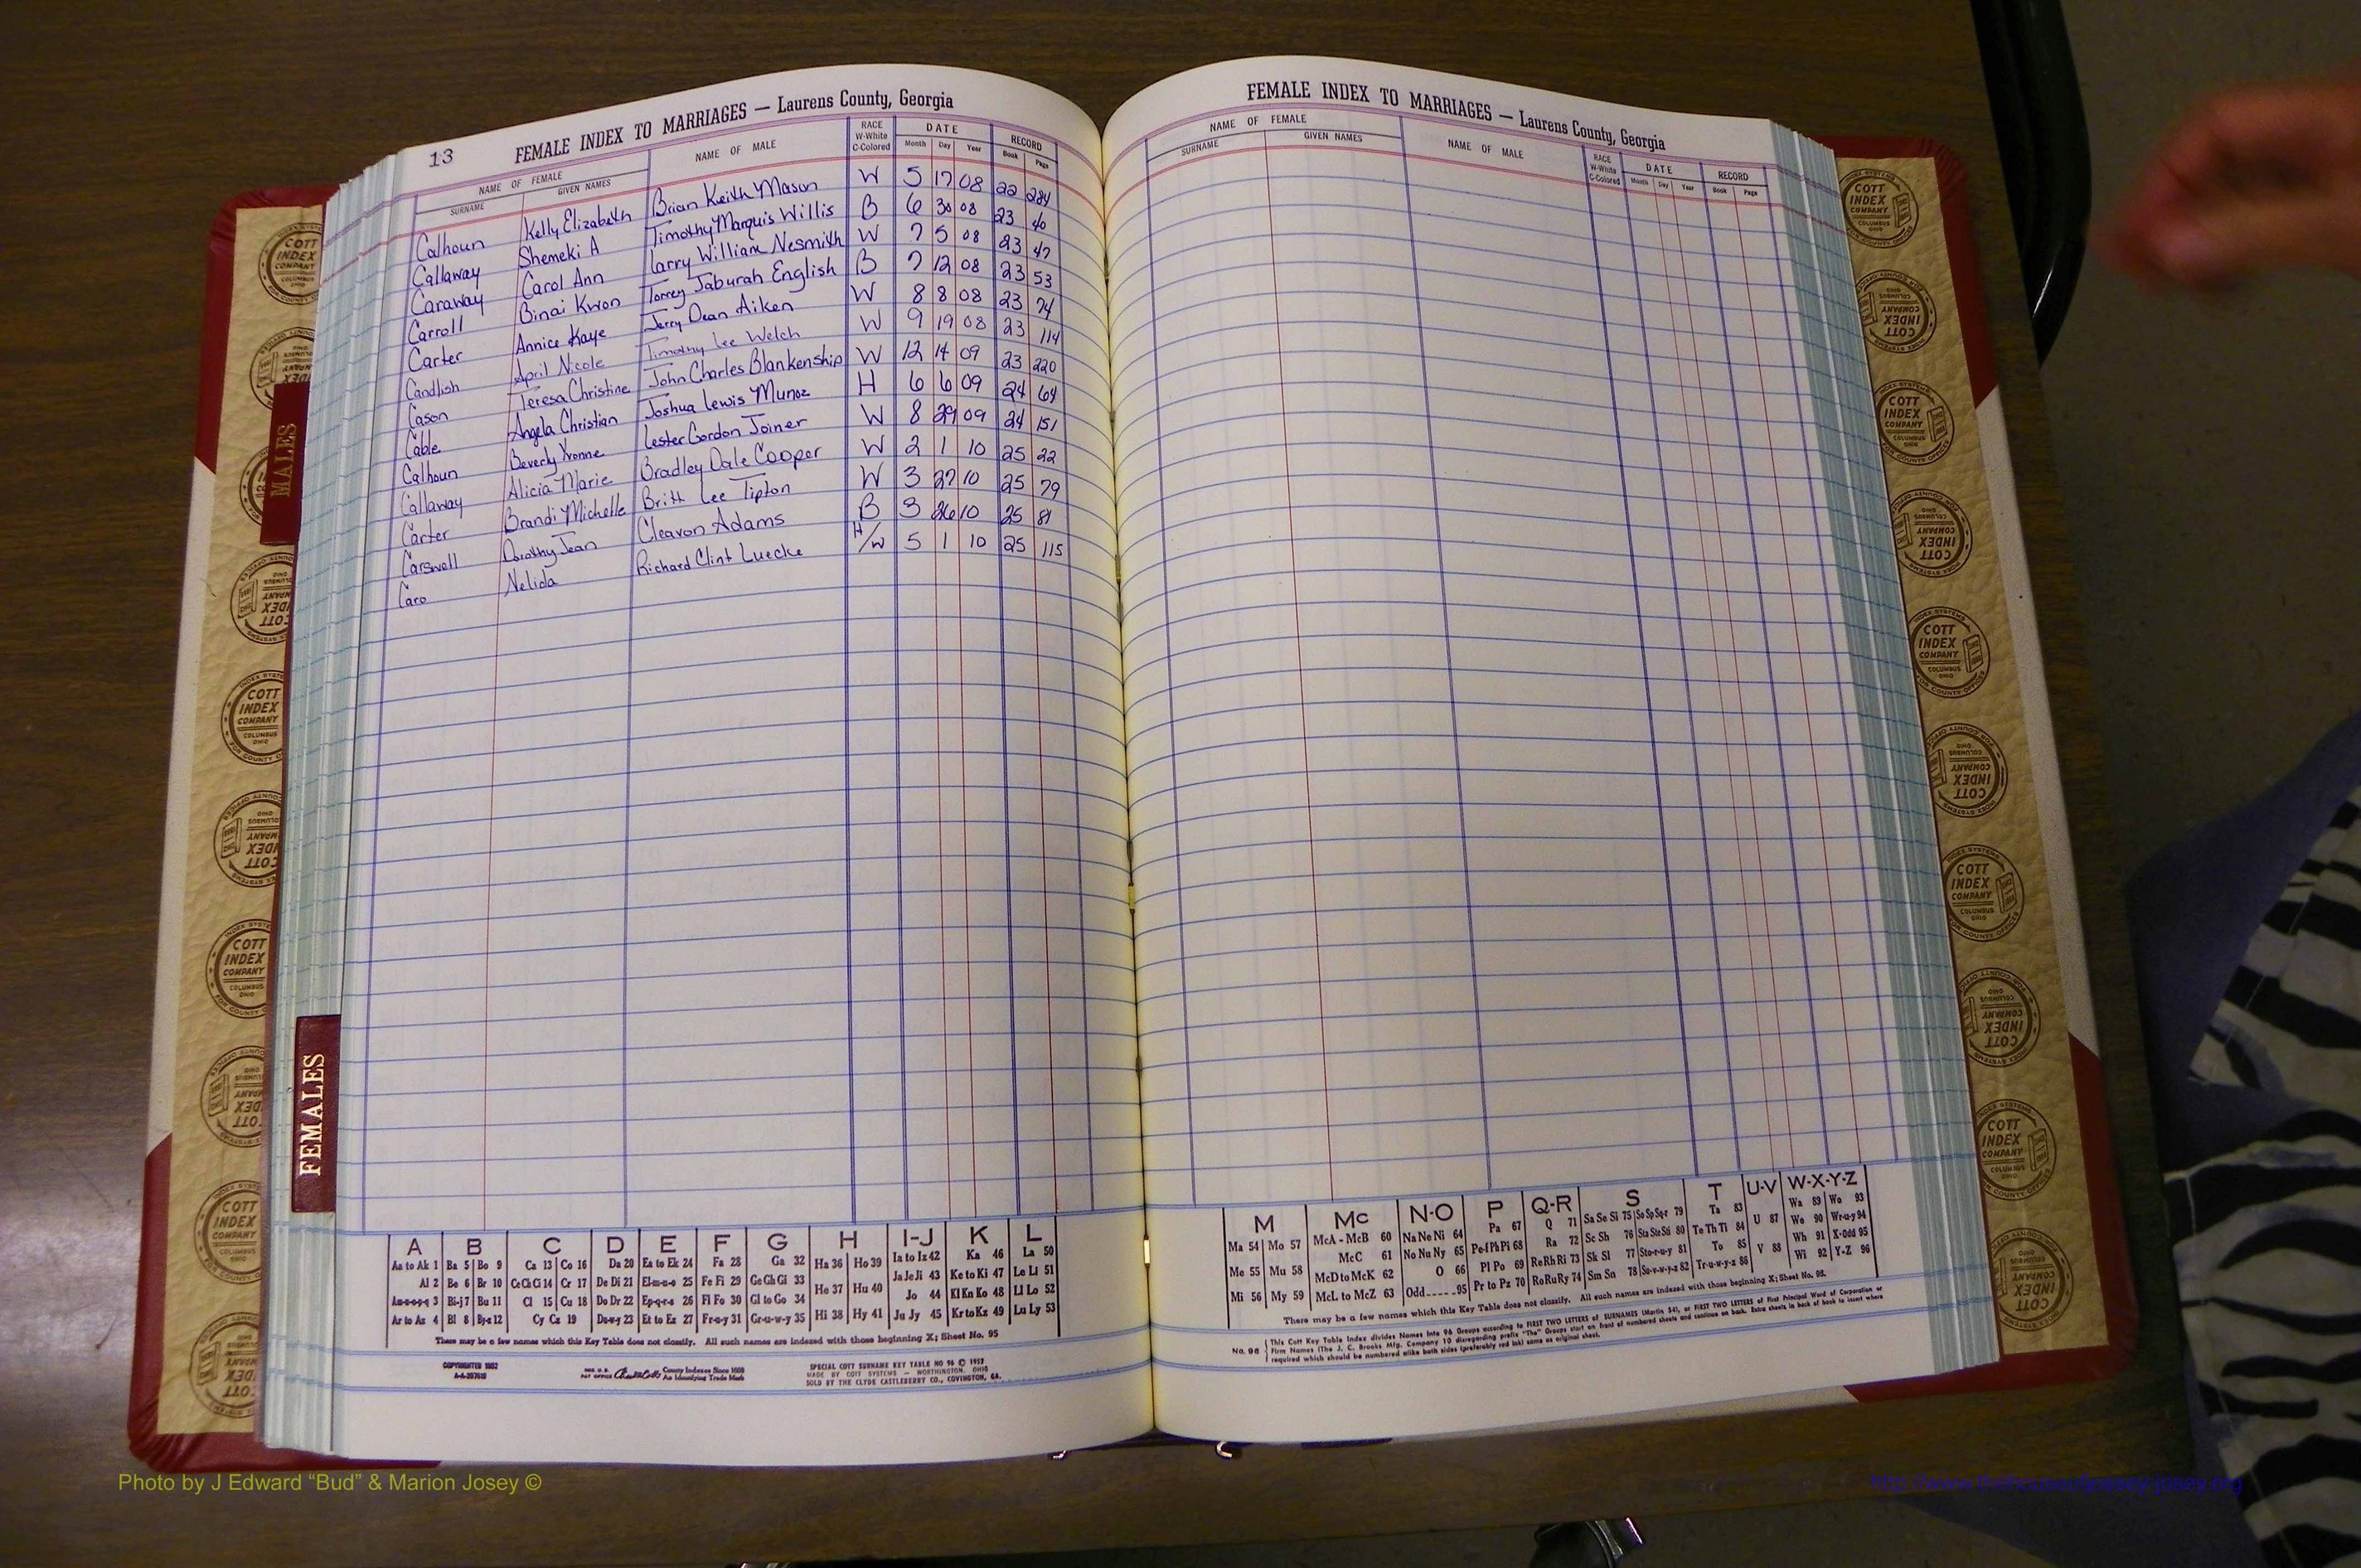 13
FEMALE INDEX TO MARRIAGES — Laurens County, Georgia
NAME OF FEMALE NAME OF MALE RACE W-White C-Colored DATE RECORD
SURNAME GIVEN NAMES Month Day Year Book Page
Calhoun Kelly Elizabeth Brian Keith Mason W 5 17 08 22 284
Callaway Shemeki A Timothy Marquis Willis B 6 30 08 23 40
Caraway Carol Ann Larry William Nesmith W 7 5 08 23 47
Carroll Binai Kwon Torrey Jaburah English B 7 12 08 23 53
Carter Annice Kaye Jerry Dean Aiken W 8 8 08 23 74
Candlish April Nicole Timothy Lee Welch W 9 19 08 23 114
Cason Teresa Christine John Charles Blankenship W 12 14 09 23 220
Cable Angela Christian Joshua Lewis Munoz H 6 6 09 24 64
Calhoun Beverly Yvonne Lester Gordon Joiner W 8 29 09 24 151
Callaway Alicia Marie Bradley Dale Cooper W 2 1 10 25 22
Carter Brandi Michelle Britt Lee Tipton W 3 27 10 25 79
Carswell Dorothy Jean Cleavon Adams B 3 26 10 25 81
Caro Nelida Richard Clint Luecke H/W 5 1 10 25 115
A B C D E F G H I-J K L
Aa to Ak 1 Ba 5 Bo 9 Ca 13 Co 16 Da 20 Ea to Ek 24 Fa 28 Ga 32 Ha 36 Ho 39 Ia to Iz 42 Ka 46 La 50
Al 2 Be 6 Br 10 Ce Ch Ci 14 Cr 17 De Di 21 El-m-n-o 25 Fe Fi 29 Ge Gh Gi 33 He 37 Hu 40 Ja Je Ji 43 Ke to Ki 47 Le Li 51
Am-n-o-p-q 3 Bi-j 7 Bu 11 Cl 15 Cu 18 Do Dr 22 Ep-q-r-s 26 Fl Fo 30 Gl to Go 34 Hi 38 Hy 41 Jo 44 Kl Kn Ko 48 Ll Lo 52
Ar to Az 4 Bl 8 By-z 12 Cy Cz 19 Du-w-y 23 Et to Ez 27 Fr-u-y 31 Gr-u-w-y 35 Ju Jy 45 Kr to Kz 49 Lu Ly 53
There may be a few names which this Key Table does not classify. All such names are indexed with those beginning X; Sheet No. 95
County Indexes Since 1888
An Identifying Trade Mark
SPECIAL COTT SURNAME KEY TABLE NO 96 © 1952
MADE BY COTT SYSTEMS — WORTHINGTON, OHIO
SOLD BY THE CLYDE CASTLEBERRY CO., COVINGTON, GA.
FEMALE INDEX TO MARRIAGES — Laurens County, Georgia
NAME OF FEMALE NAME OF MALE RACE W-White C-Colored DATE RECORD
SURNAME GIVEN NAMES Month Day Year Book Page
M Mc N-O P Q-R S T U-V W-X-Y-Z
Ma 54 Mo 57 McA - McB 60 Na Ne Ni 64 Pa 67 Q 71 Sa Se Si 75 So Sp Sq-r 79 Ta 83 U 87 Wa 89 Wo 93
Me 55 Mu 58 McC 61 No Nu Ny 65 Pe-f Ph Pi 68 Ra 72 Sc Sh 76 Sta Ste Sti 80 Te Th Ti 84 V 88 We 90 Wr-u-y 94
Mi 56 My 59 McD to McK 62 O 66 Pl Po 69 Re Rh Ri 73 Sk Sl 77 Sto-r-u-y 81 To 85 Wh 91 X-Odd 95
McL to McZ 63 Odd-----95 Pr to Pz 70 Ro Ru Ry 74 Sm Sn 78 Su-v-w-y-z 82 Tr-u-w-y-z 86 Wi 92 Y-Z 96
There may be a few names which this Key Table does not classify. All such names are indexed with those beginning X; Sheet No. 95.
No. 96 This Cott Key Table Index divides Names into 96 Groups according to FIRST TWO LETTERS of SURNAMES (Martin 54), or FIRST TWO LETTERS of First Principal Word of Corporation or
Firm Names (The J. C. Brooks Mfg. Company 10 disregarding prefix "The" Groups start on front of numbered sheets and continue on back. Extra sheets in back of book to insert where
required which should be numbered alike both sides (preferably red ink) same as original sheet.
MALES
FEMALES
COTT INDEX COMPANY
COLUMBUS OHIO
Photo by J Edward “Bud” & Marion Josey ©